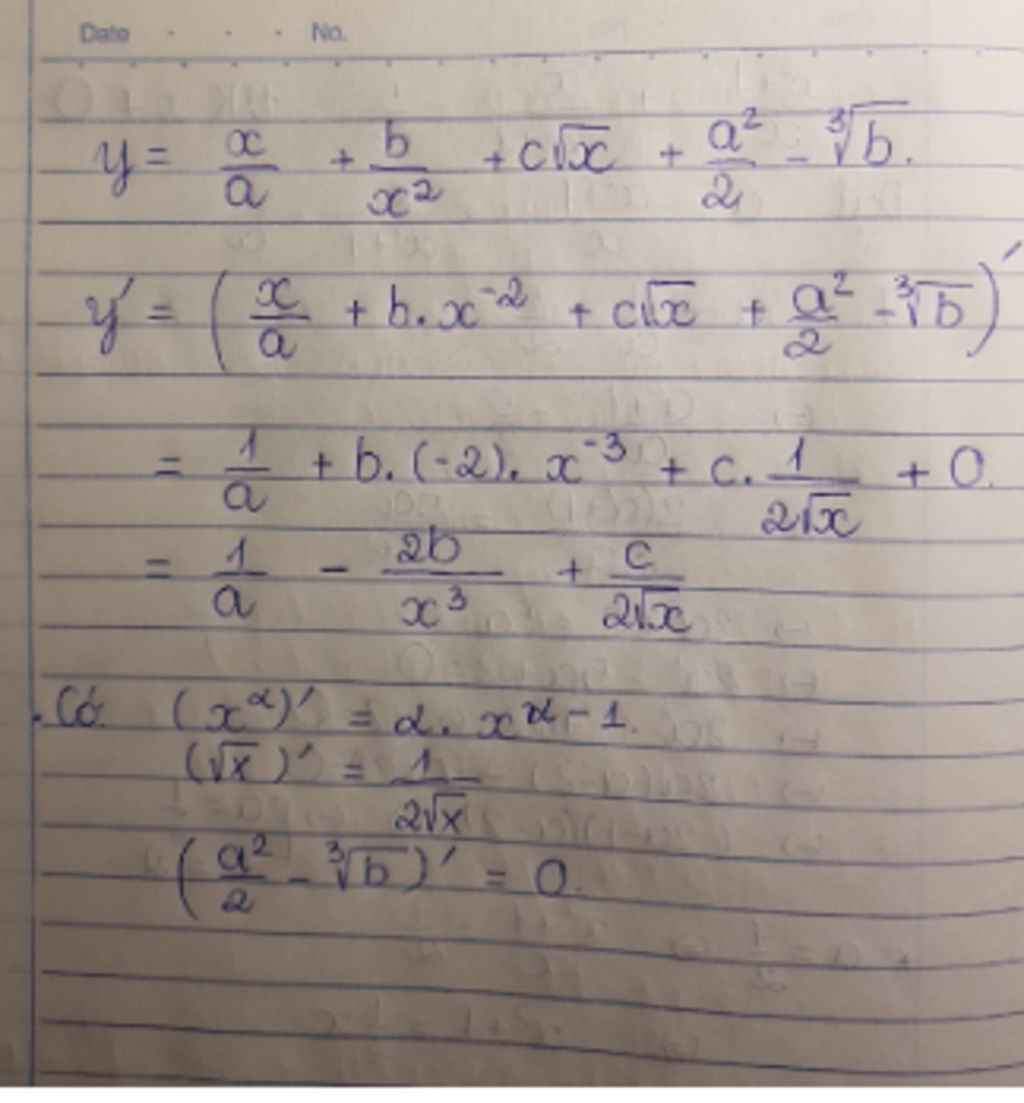 Date . . . No.
y = x/a + b/x² + c√x + a²/2 - ∛b.
y' = (x/a + b.x⁻² + c√x + a²/2 - ∛b)'
= 1/a + b.(-2). x⁻³ + c. 1/(2√x) + 0.
= 1/a - 2b/x³ + c/(2√x)
. Có (x^α)' = α. x^(α-1).
(√x)' = 1/(2√x)
(a²/2 - ∛b)' = 0.